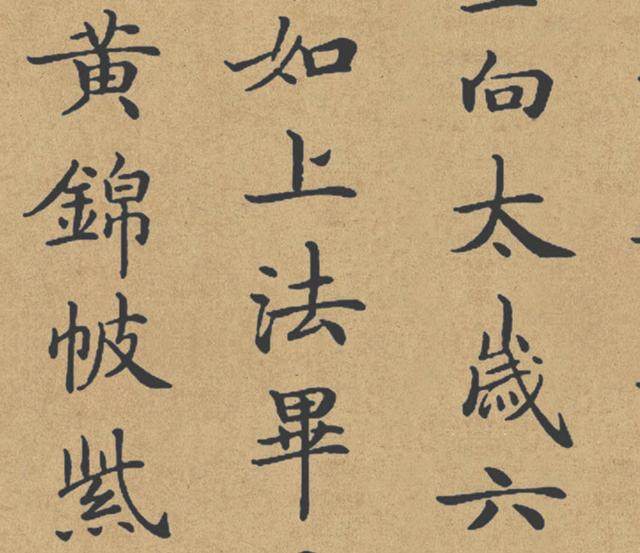 向太歲六
如上法畢
黃錦帔紫